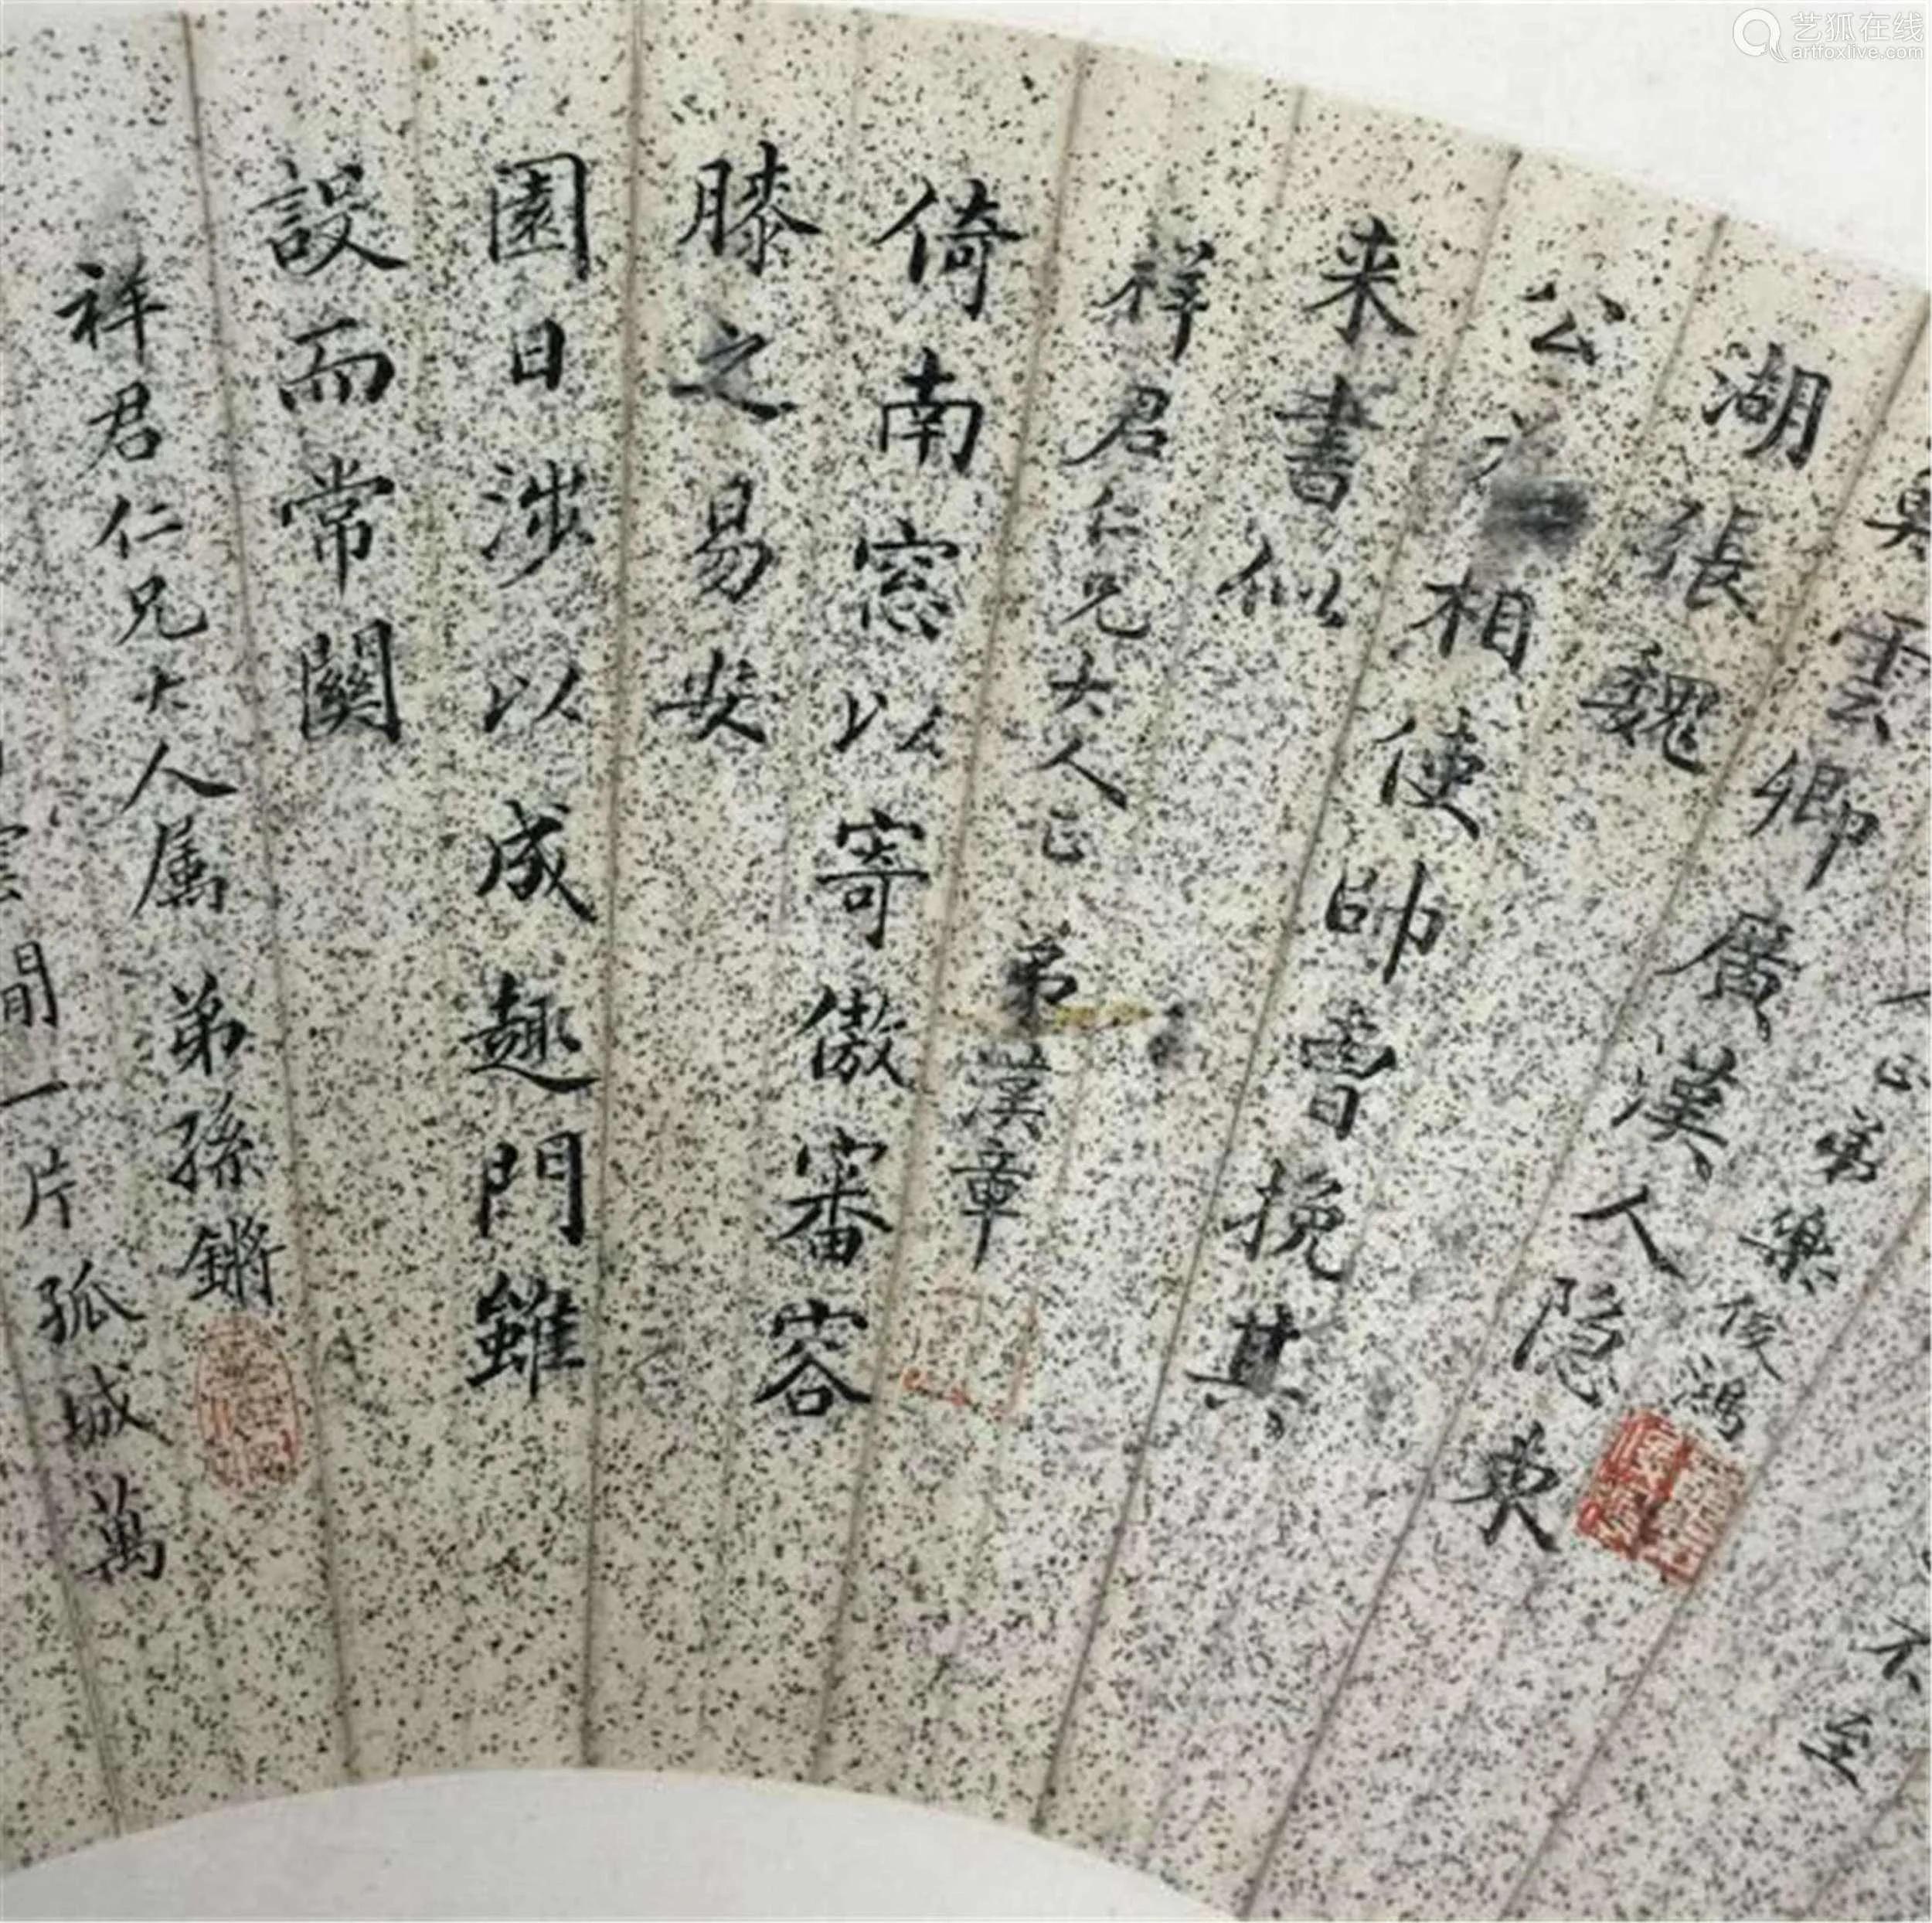 不至
人正弟樂俊鴻
雲卿廣漢人隐東
湖張魏
公相使帥曾挽其
来書似
祥君仁兄大人正 弟漢章
倚南窓以寄傲審容
膝之易安
園日涉以成趣門雖
設而常關
祥君仁兄大人属 弟孫鏘
間一片孤城萬
艺狐在线
artfoxlive.com